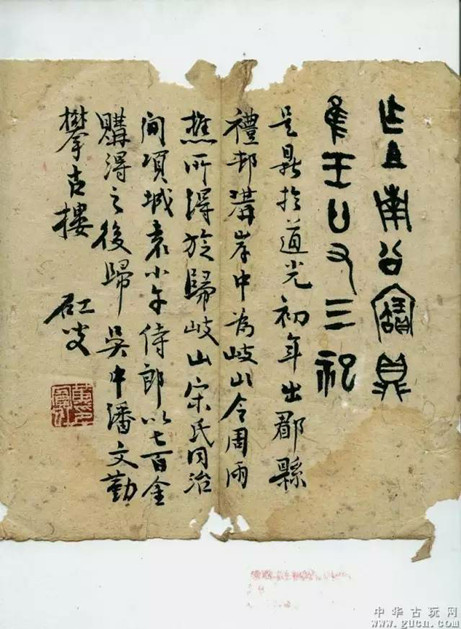 乍且南公寶鼎
隹王廿又三祀
是鼎於道光初年出郿縣
禮邨溝岸中為岐山令周雨
樵所得旋歸岐山宋氏同治
間項城袁小午侍郎以七百金
購得之後歸吳中潘文勤
攀古樓
叟
中华古玩网
www.gucn.com